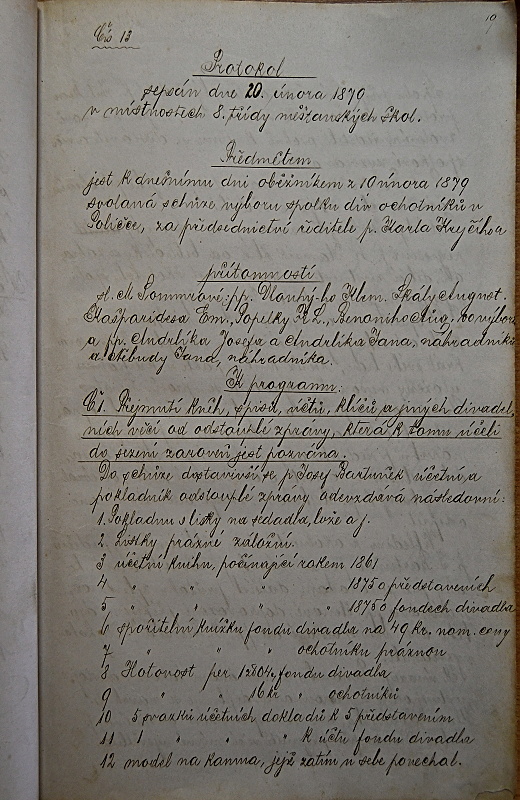 19
Čís 13
Protokol
sepsán dne 20. února 1879
v místnostech 8. třídy měšťanských škol.
Předmětem
jest k dnešnímu dni oběžníkem z 10 února 1879
svolaná schůze výboru spolku div ochotníků v
Poličce, za předsednictví ředitele p. Karla Krejčího a
přítomností
sl. M Pommrové; pp. Hlouprý-ho Klem. Skály August.
Kašparidesa Em., Popelky K L., Benoniho Aug.
a pp. Andrlíka Josefa a Andrlíka Jana, náhradníků
a Jana, náhradníka.
K programu:
Č 1. Přejmutí knih, spisů, účtů, klíčů a jiných divadel
ních věcí od odstouplé zprávy, která k tomu účeli
do sezení zároveň jest pozvána.
Do schůze dostavivší se p Josef Bartuněk účetní a
pokladník odstouplé zprávy odevzdává následovní:
1. Pokladnu s lístky na sedadla, lože a j.
2 Lístky prázné záložní.
3 účetní knihu, počínající rokem 1861
4 " " " " 1875 o představeních
5 " " " " 1875 o fondech divadla
6 spořitelní knížku fondu divadla na 49 kr. nom. ceny
7 " " " ochotníku práznou
8 Hotovost per fondu divadla
9 " " 16 kr " ochotníků
10 5 svazků účetních dokladů k 5 představením
11 1 " " " k účtu fondu divadla
12 model na kamna, jejž zatím u sebe ponechal.